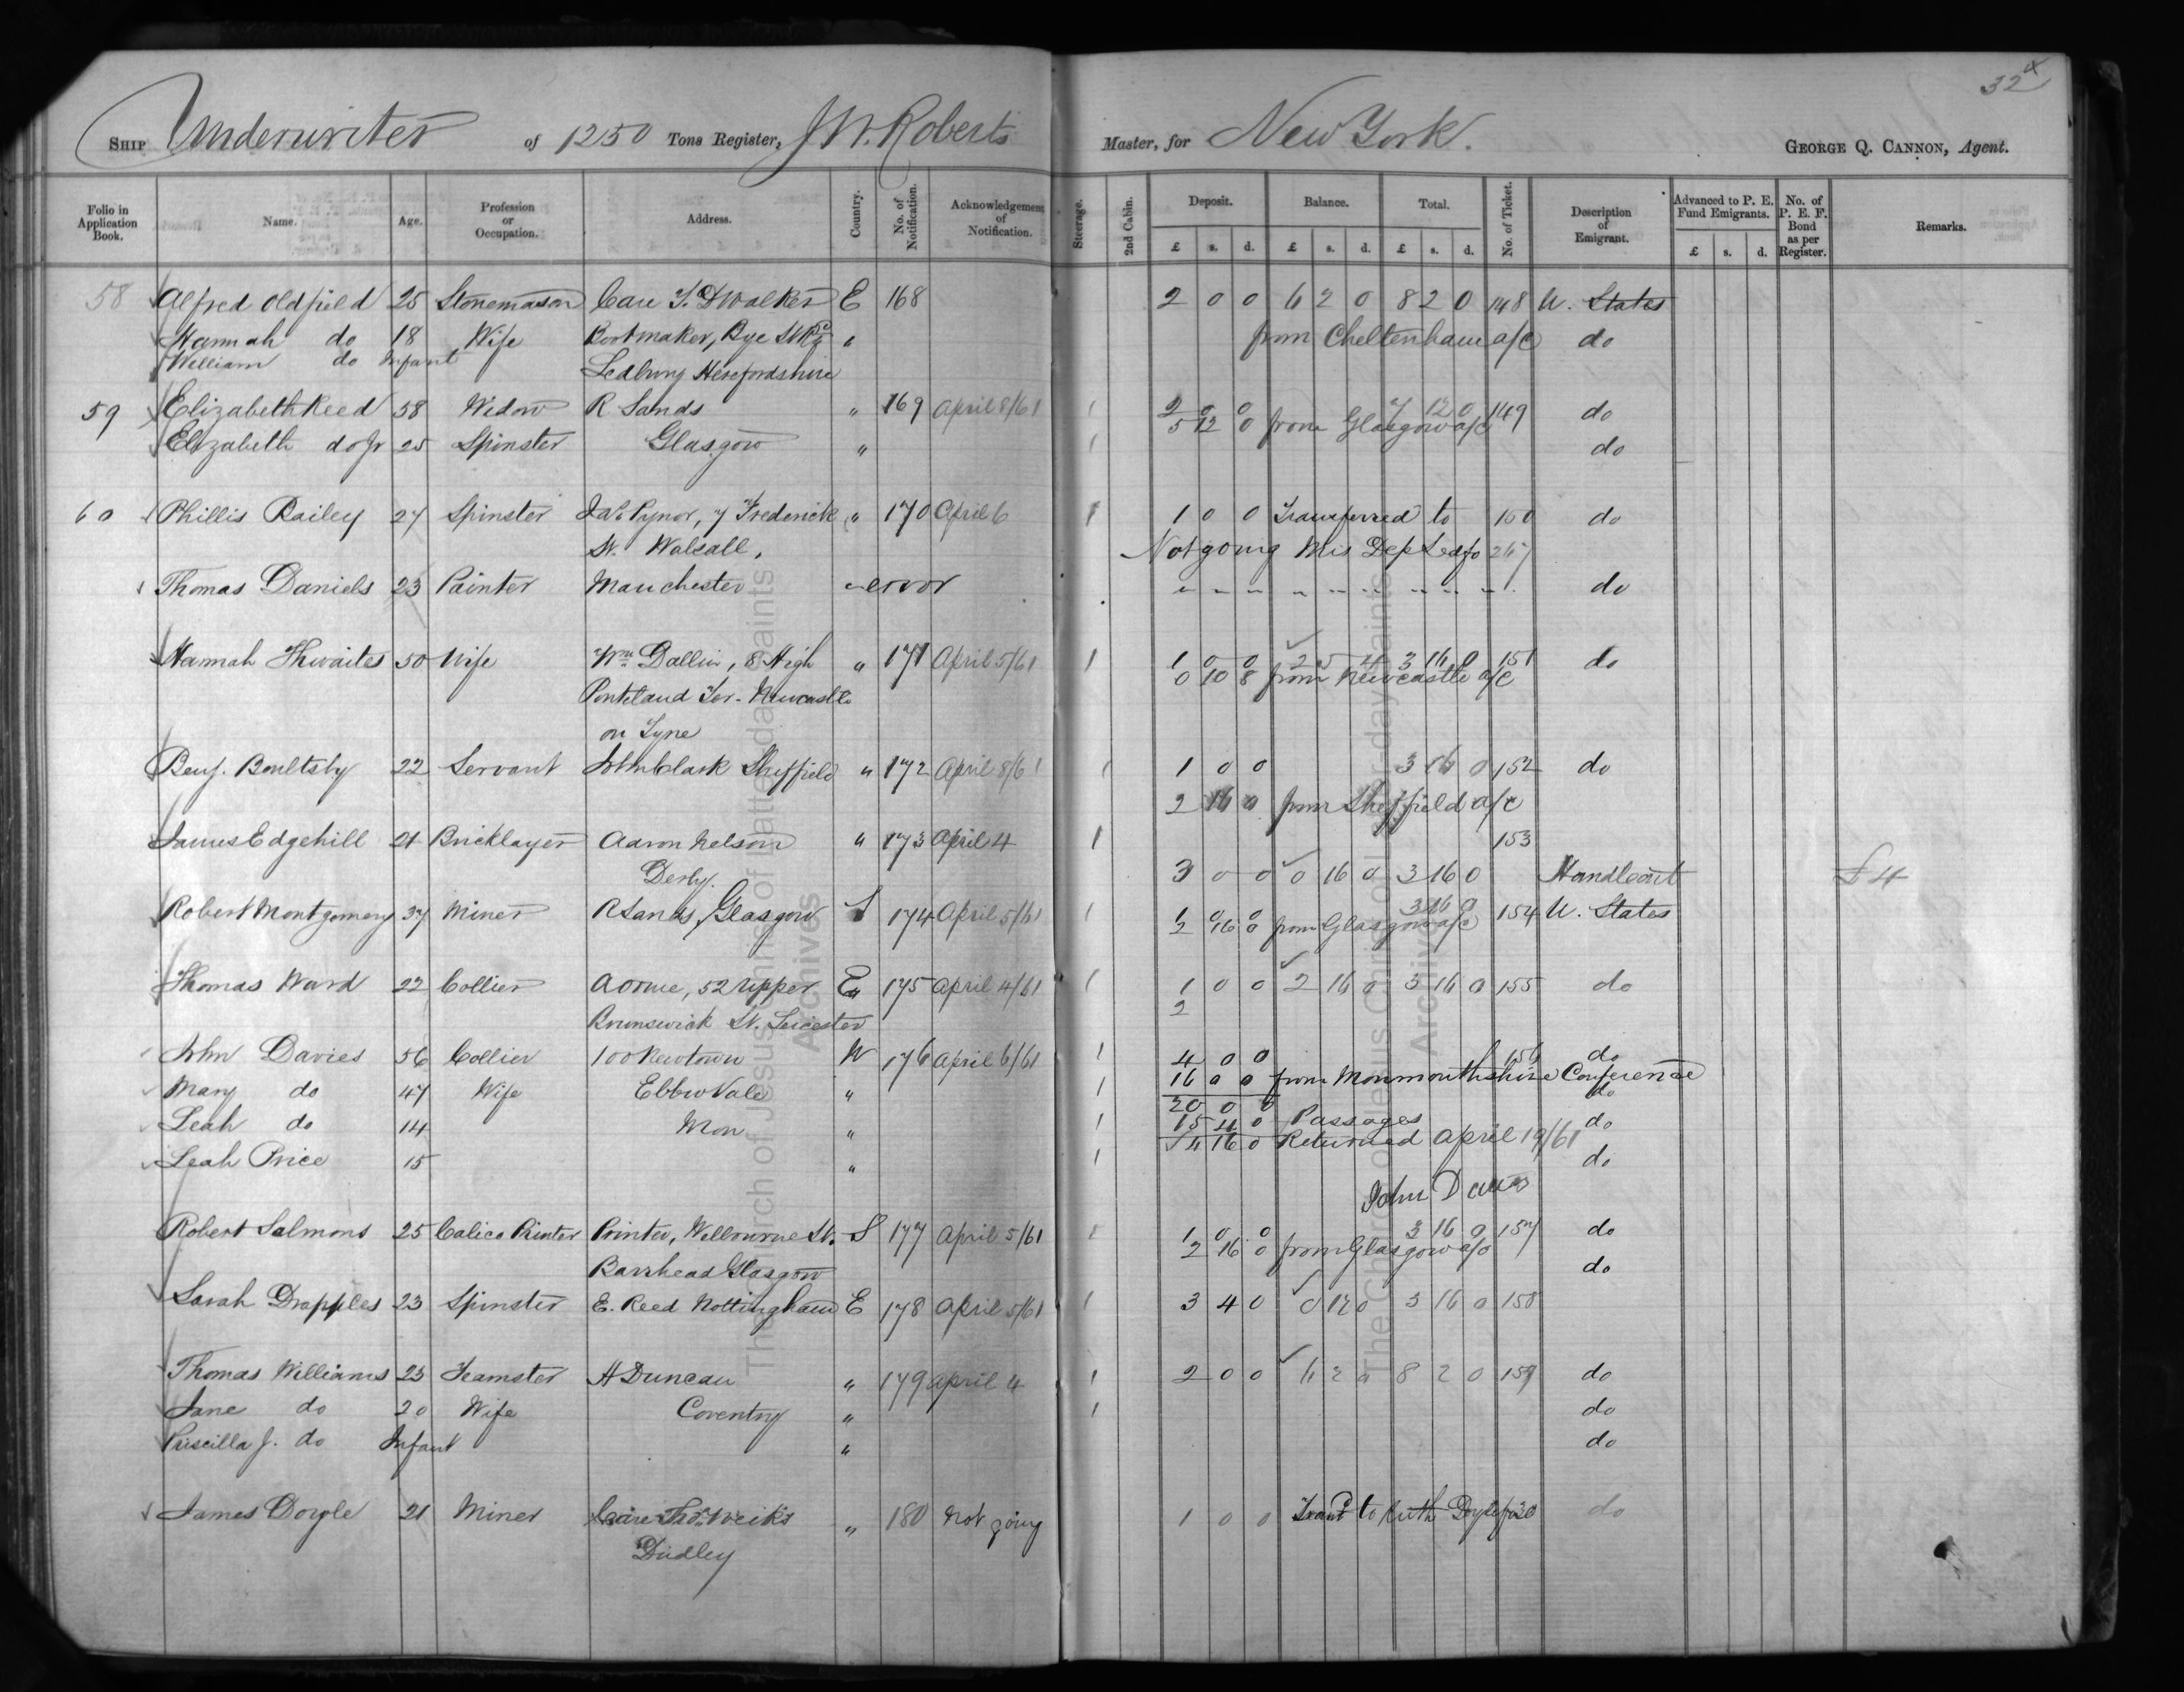 324
SHIP Underwriter of 1250 Tons Register, J W. Roberts Master, for New York. GEORGE Q. CANNON, Agent.
Folio in Application Book. Name. Age. Profession or Occupation. Address. Country. No. of Notification. Acknowledgement of Notification. Steerage. 2nd Cabin. Deposit. Balance. Total. No. of Ticket. Description of Emigrant. Advanced to P. E. Fund Emigrants. No. of P. E. F. Bond as per Register. Remarks.
£ s. d. £ s. d. £ s. d. £ s. d.
58 Alfred Oldfield 25 Stonemason Care T. D Walker E 168 2 0 0 6 2 0 8 2 0 148 U. States
Hannah do 18 Wife Bootmaker, Bye St " from Cheltenham a/c do
William do Infant Ledbury Herefordshire
59 Elizabeth Reed 58 Widow R Sands " 169 April 8/61 1 2 0 0 7 12 0 149 do
5 12 0 from Glasgow a/c
Elizabeth do Jr 25 Spinster Glasgow " 1 do
60 Phillis Bailey 27 Spinster Jas Pynor, 7 Frederick " 170 April 6 1 1 0 0 Transferred to 150 do
St. Walsall, Not going Mis Dep Led fo 267
Thomas Daniels 23 Painter Manchester " error do
Hannah Thwaites 50 Wife Wm Dallin, 8 High " 171 April 5/61 1 1 0 0 2 5 4 3 16 0 151 do
0 10 8 from Newcastle a/c
Ponteland Ter. Newcastle
on Tyne
Benj. Boultsby 22 Servant John Clark Sheffield " 172 April 8/61 1 1 0 0 3 16 0 152 do
2 16 0 from Sheffield a/c
James Edgehill 21 Bricklayer Aaron Nelson " 173 April 4 1 153
Derby. 3 0 0 0 16 0 3 16 0 Handcart £4
Robert Montgomery 37 Miner R Sands, Glasgow S 174 April 5/61 1 1 0 0 3 16 0 154 U. States
2 16 0 from Glasgow a/c
Thomas Ward 22 Collier A Orme, 52 Upper E 175 April 4/61 1 1 0 0 2 16 0 3 16 0 155 do
Brunswick St. Leicester 2
John Davies 56 Collier 100 Newtown W 176 April 6/61 1 4 0 0 156 do
16 0 0 from Monmouthshire Conference
Mary do 47 Wife Ebbw Vale " 1 do
20 0 0
Leah do 14 Mon " 1 15 4 0 Passages do
4 16 0 Returned April 19/61
Leah Price 15 " 1 do
John Davies
Robert Salmons 25 Calico Printer Printer, Welbourne St. S 177 April 5/61 1 1 0 0 3 16 0 157 do
2 16 0 from Glasgow a/c
Barrhead Glasgow do
Sarah Drapples 23 Spinster E. Reed Nottingham E 178 April 5/61 1 3 4 0 0 12 0 3 16 0 158
Thomas Williams 23 Teamster H Duncan " 179 April 4 1 2 0 0 6 2 0 8 2 0 159 do
Jane do 20 Wife Coventry " 1 do
Priscilla J. do Infant " do
James Doyle 21 Miner Care Weiks " 180 not going 1 0 0 to Ruth Doyle do
Dudley
The Church of Jesus Christ of Latter-day Saints
Archives
The Church of Jesus Christ of Latter-day Saints
Archives